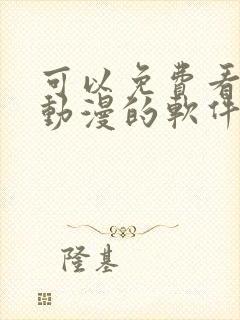 可以免費看
動漫的軟件
隆基